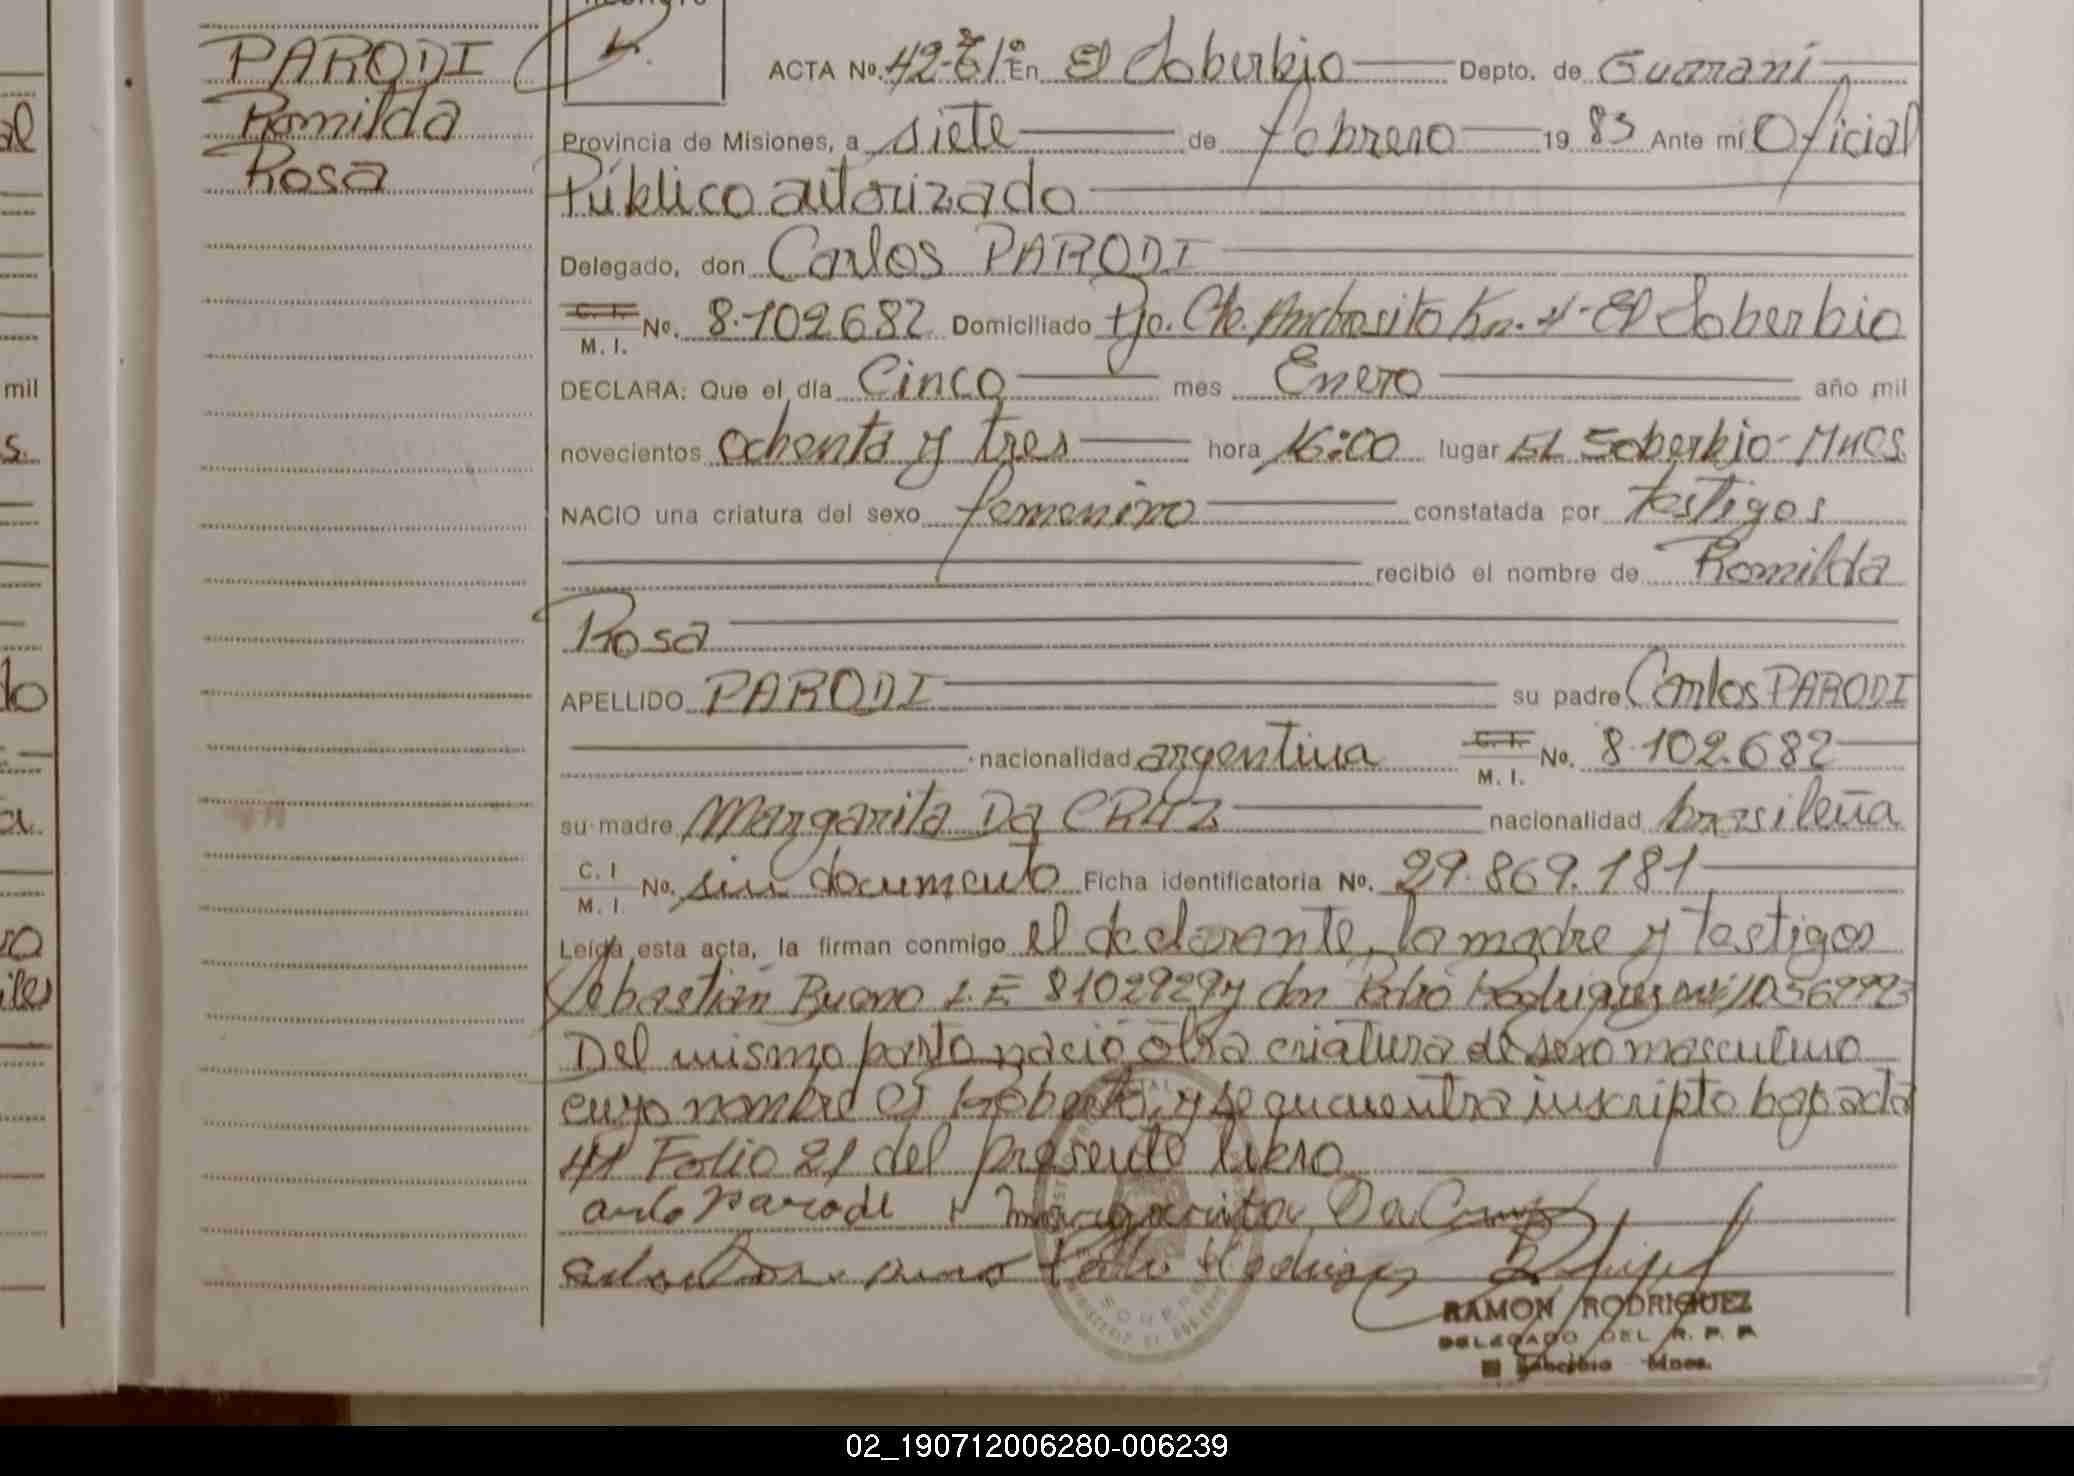 PARODI
Romilda
Rosa
ACTA No. 42-Tº 1º En El Soberbio Depto. de Guaraní
Provincia de Misiones, a siete de febrero 19 83 Ante mí Oficial
Público autorizado
Delegado, don Carlos PARODI
C. I. M. I. No. 8.102.682 Domiciliado Pje. Cte. Ambrosito Km. 4- El Soberbio
DECLARA: Que el día Cinco mes Enero año mil
novecientos ochenta y tres hora 16:00 lugar EL Soberbio- Mnes.
NACIO una criatura del sexo femenino constatada por testigos
recibió el nombre de Romilda
Rosa
APELLIDO PARODI su padre Carlos PARODI
nacionalidad argentina C. I. M. I. No. 8.102.682
su madre Margarita Da CRUZ nacionalidad brasileña
C. I M. I. No. sin documento Ficha identificatoria No. 29.869.181
Leída esta acta, la firman conmigo el declarante, la madre y testigos
Sebastián Bueno L.E 8102929 y don Pedro Rodriguez
Del mismo parto nació otra criatura de sexo masculino
cuyo nombre es Roberto, y se encuentra inscripto bajo acta
41 Folio 21 del presente libro
Parodi Margarita Da Cruz
Pedro Rodriguez
RAMON RODRIGUEZ
DELEGADO DEL R. P. P.
Soberbio Mnes.
al
mil
s.
do
a.
ro
iles
02_190712006280-006239